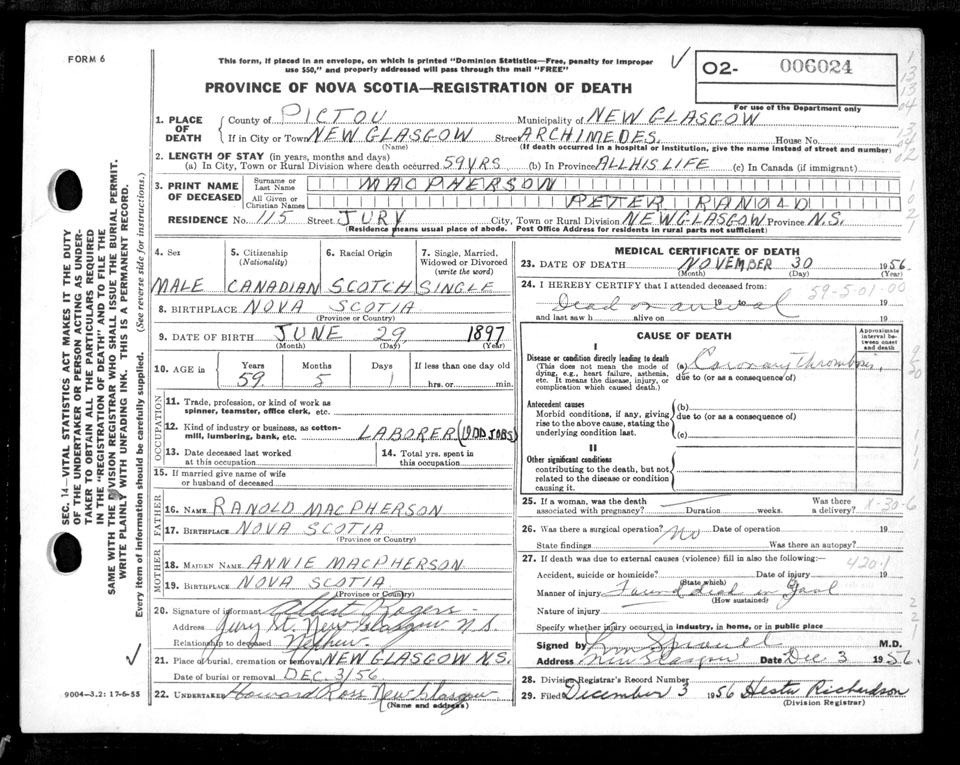 FORM 6
This form, if placed in an envelope, on which is printed "Dominion Statistics—Free, penalty for improper
use $50," and properly addressed will pass through the mail "FREE"
02- 006024
PROVINCE OF NOVA SCOTIA—REGISTRATION OF DEATH
For use of the Department only
1. PLACE OF DEATH
County of PICTOU Municipality of NEW GLASGOW
If in City or Town NEW GLASGOW Street ARCHIMEDES. House No.
(Name) (If death occurred in a hospital or institution, give the name instead of street and number)
2. LENGTH OF STAY (in years, months and days)
(a) In City, Town or Rural Division where death occurred 59 YRS (b) In Province ALL HIS LIFE (c) In Canada (if immigrant)
3. PRINT NAME OF DECEASED
Surname or Last Name MACPHERSON
All Given or Christian Names PETER RANOLD
RESIDENCE No. 115 Street JURY City, Town or Rural Division NEW GLASGOW Province N.S.
(Residence means usual place of abode. Post Office Address for residents in rural parts not sufficient)
4. Sex
MALE
5. Citizenship (Nationality)
CANADIAN
6. Racial Origin
SCOTCH
7. Single, Married, Widowed or Divorced (write the word)
SINGLE
8. BIRTHPLACE NOVA SCOTIA
(Province or Country)
9. DATE OF BIRTH JUNE 29 1897
(Month) (Day) (Year)
10. AGE in
Years Months Days If less than one day old
59 5 1 hrs. or min.
OCCUPATION
11. Trade, profession, or kind of work as
spinner, teamster, office clerk, etc.
12. Kind of industry or business, as cotton-
mill, lumbering, bank, etc. LABORER (ODD JOBS)
13. Date deceased last worked
at this occupation
14. Total yrs. spent in
this occupation
15. If married give name of wife
or husband of deceased
FATHER
16. NAME RANOLD MACPHERSON
17. BIRTHPLACE NOVA SCOTIA
(Province or Country)
MOTHER
18. MAIDEN NAME ANNIE MACPHERSON
19. BIRTHPLACE NOVA SCOTIA
(Province or Country)
20. Signature of informant Albert Rogers
Address Jury St. New Glasgow N.S.
Relationship to deceased Nephew.
21. Place of burial, cremation or removal NEW GLASGOW N.S.
Date of burial or removal DEC. 3/56.
22. UNDERTAKER Howard Ross New Glasgow
(Name and address)
MEDICAL CERTIFICATE OF DEATH
23. DATE OF DEATH NOVEMBER 30 1956.
(Month) (Day) (Year)
24. I HEREBY CERTIFY that I attended deceased from:
59-5-01-00
19 to 19
Dead on arrival
and last saw h alive on 19
CAUSE OF DEATH
Approximate interval between onset and death
I
Disease or condition directly leading to death
(This does not mean the mode of
dying, e.g., heart failure, asthenia,
etc. It means the disease, injury, or
complication which caused death.)
(a) Coronary thrombosis,
due to (or as a consequence of)
Antecedent causes
Morbid conditions, if any, giving
rise to the above cause, stating the
underlying condition last.
(b)
due to (or as a consequence of)
(c)
II
Other significant conditions
contributing to the death, but not
related to the disease or condition
causing it.
25. If a woman, was the death
associated with pregnancy? Duration weeks. Was there a delivery?
X-30-6
26. Was there a surgical operation? No Date of operation 19
State findings Was there an autopsy?
27. If death was due to external causes (violence) fill in also the following:
420.1
Accident, suicide or homicide? Date of injury 19
(State which)
Manner of injury Found dead in Gaol
(How sustained)
Nature of injury
Specify whether injury occurred in industry, in home, or in public place
Signed by M.D.
Address New Glasgow Date Dec 3 1956.
28. Division Registrar's Record Number
29. Filed December 3 1956 Hester Richardson
(Division Registrar)
9004—3.2: 17-6-55
SEC. 14—VITAL STATISTICS ACT MAKES IT THE DUTY
OF THE UNDERTAKER OR PERSON ACTING AS UNDER-
TAKER TO OBTAIN ALL THE PARTICULARS REQUIRED
IN THE "REGISTRATION OF DEATH" AND TO FILE THE
SAME WITH THE DIVISION REGISTRAR WHO SHALL ISSUE THE BURIAL PERMIT.
WRITE PLAINLY WITH UNFADING INK. THIS IS A PERMANENT RECORD.
Every item of information should be carefully supplied. (See reverse side for instructions.)